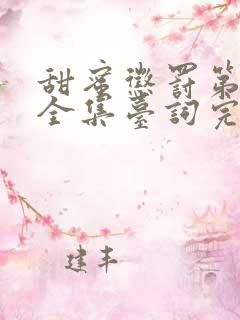 甜蜜懲罰第
全集臺詞完
建丰